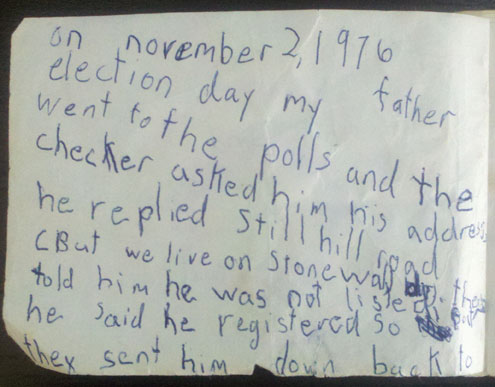 on november 2, 1976
election day my father
went to the polls and the
checker asked him his address
he replied Still hill road
(But we live on Stonewall
told him he was not listed. they
he said he registered so
they sent him down back to